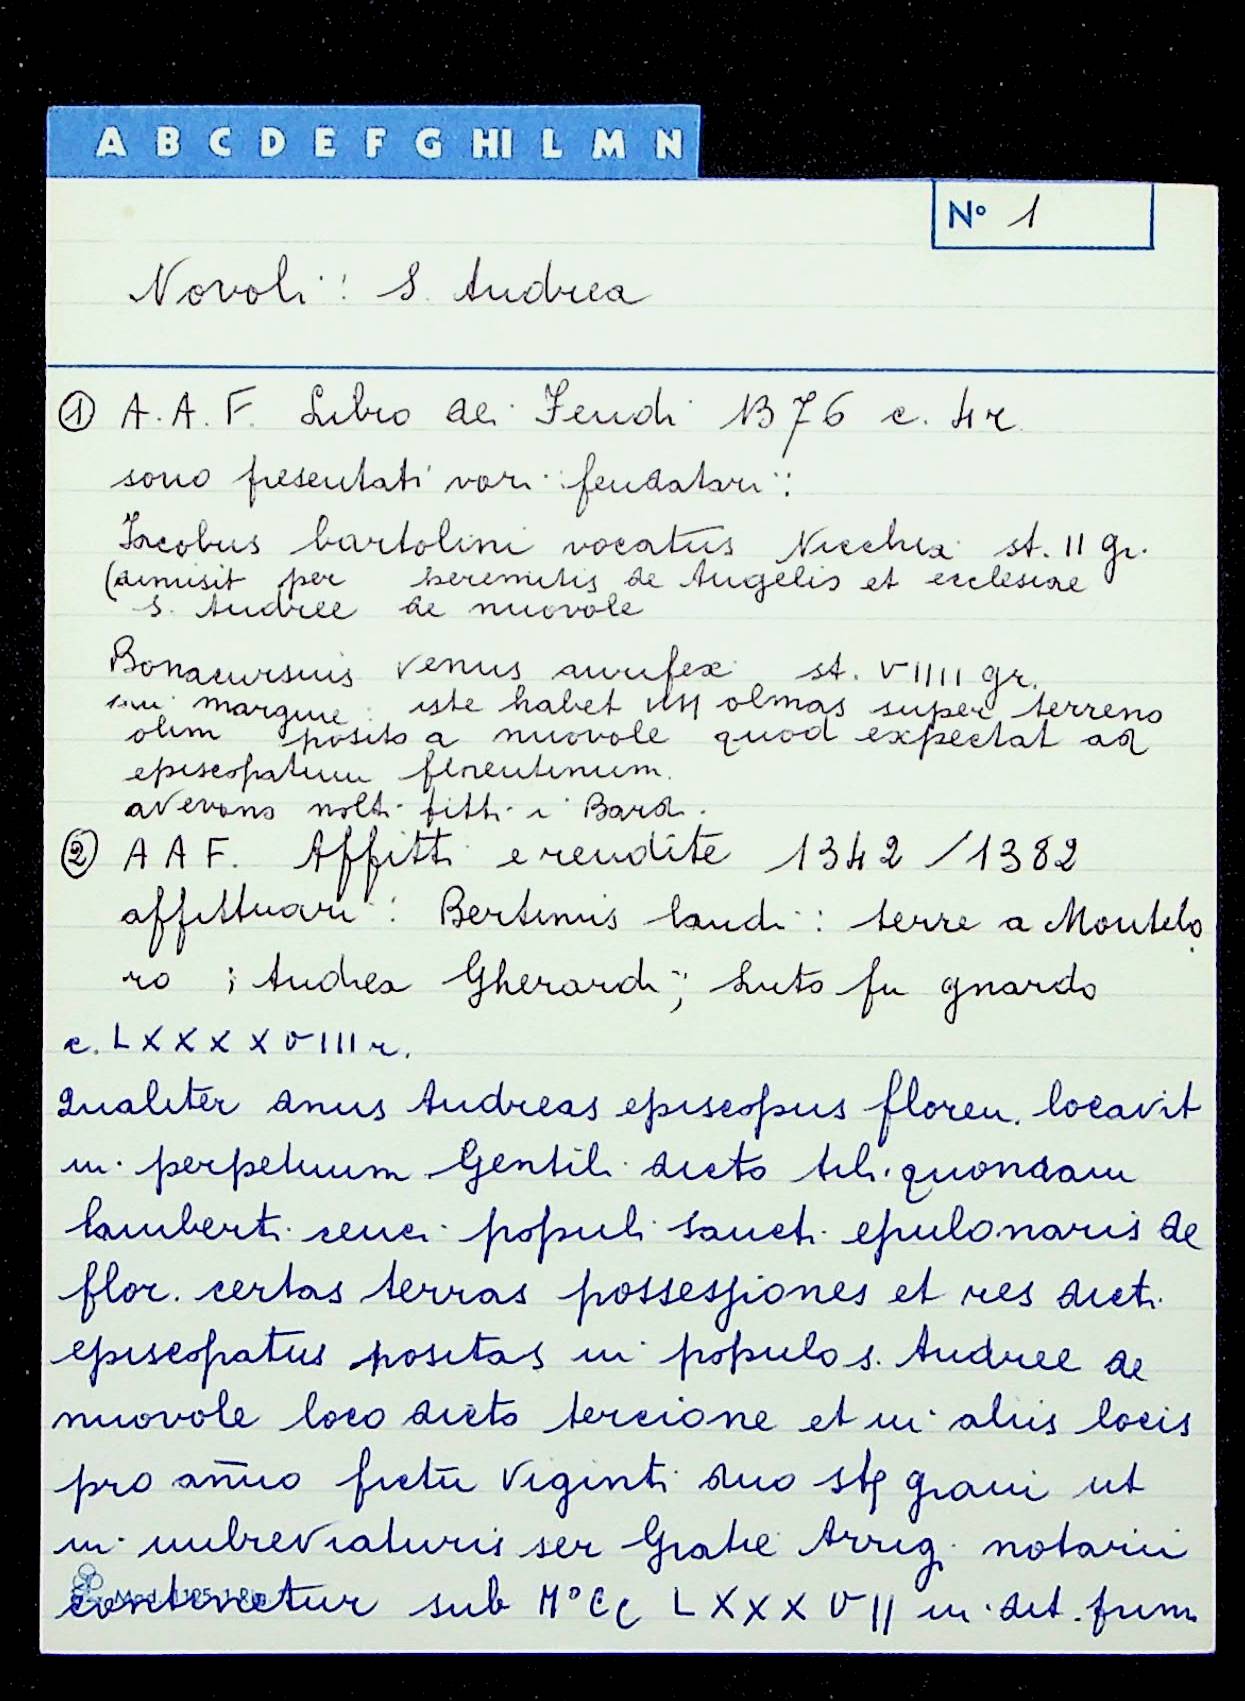 A B C D E F G HI L M N
N° 1
Novoli: S. Andrea
① A.A.F. Libro dei Feudi 1376 c. 4r
sono presentati vari feudatari:
Iacobus bartolini vocatus Nicchia st. II gr.
(dimisit per heremitis de Angelis et ecclesiae
S. Andree de nuovole
Bonacursius Venus aurifex st. VIIII gr.
in margine: iste habet olmos super terreno
olim posito a nuovole quod expectat ad
episcopatum florentinum.
avevano molti fitti i Bardi.
② A A F. Affitti e rendite 1342 / 1382
affittuari: Bertinus landi: terre a Montelo
ro; Andrea Gherardi; Luto fu gnardo
c. LXXXXVIII r.
Qualiter dnus Andreas episcopus floren. locavit
in perpetuum Gentili dicto quondam
lamberti cenci populi sancti epulonaris de
flor. certas terras possessiones et res dicti
episcopatus positas in populo s. Andree de
nuovole loco dicto tercione et in aliis locis
pro annuo fictu viginti duo st grani ut
in imbreviaturis ser Gratie Arrig. notarii
continetur sub M°CC LXXXVII in dct.